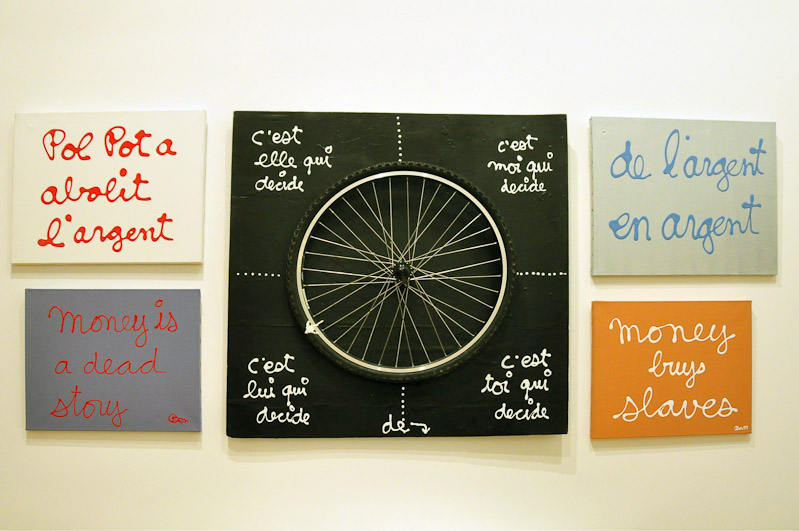 Pol Pot a
abolit
l'argent
Money is
a dead
story
c'est
elle qui
decide
c'est
moi qui
decide
c'est
lui qui
decide
c'est
toi qui
decide
de l'argent
en argent
money
buys
slaves